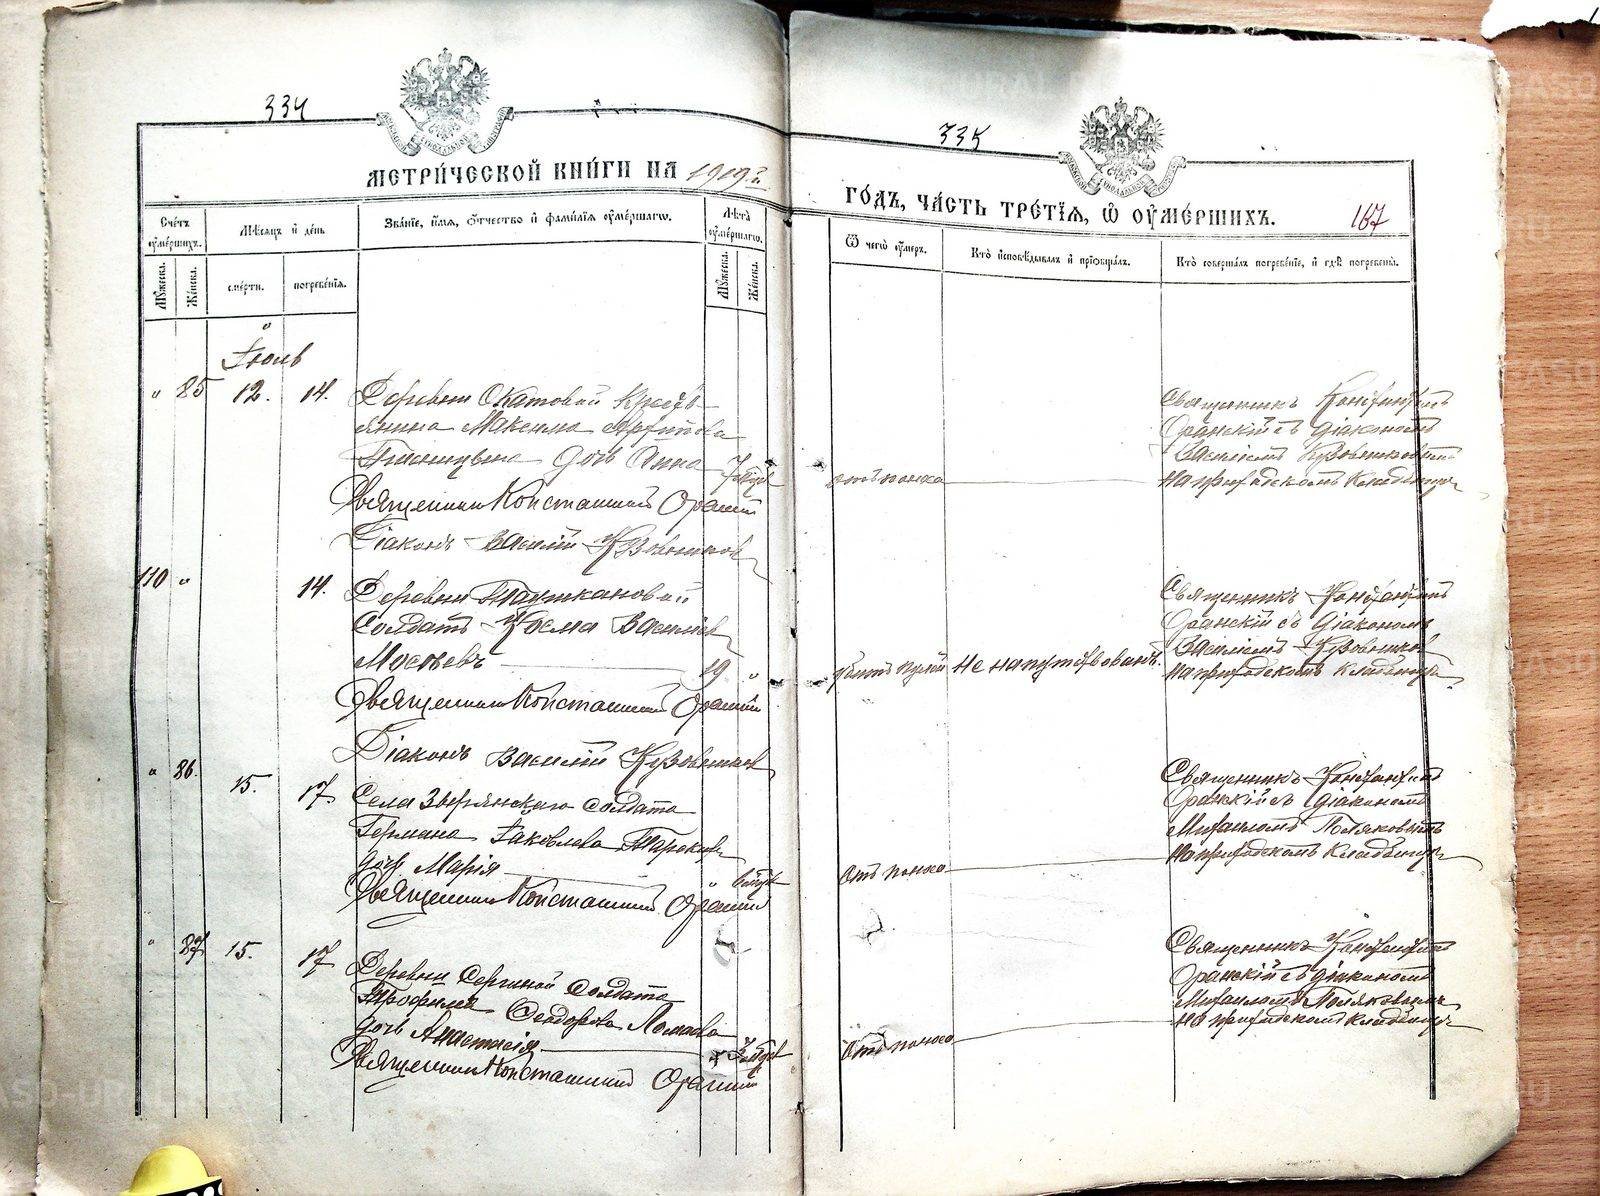 334
МЕТРИЧЕСКОЙ КНИГИ НА 1919 г.
Счетъ умершихъ.
Мужеска.
Женска.
Мѣсяцъ и день
смерти.
погребенія.
Званіе, имя, отчество и фамилія умершаго.
Лѣта умершаго.
Мужеска.
Женска.
Іюль
" 85 12. 14. Деревни Окатовой Кресть-
янина Максима
дочь Анна 7
Священникъ Константинъ Оранскій
Діаконъ Василій Кузовниковъ
110 " 14. Деревни
Солдатъ Косма Васильевъ
Мосѣевъ 19 "
Священникъ Константинъ Оранскій
Діаконъ Василій Кузовниковъ
" 86. 15. 17. Села Звѣринскаго солдата
Германа Іаковлева
дочь Марія "
Священникъ Константинъ Оранскій
" 87 15. 17 Деревни Сергиной Солдата
Трофима Ѳеодорова
дочь Анастасія
Священникъ Константинъ Оранскій
335
ГОДЪ, ЧАСТЬ ТРЕТІЯ, Ѿ УМЕРШИХЪ.
167
Ѿ чего умеръ.
Кто исповѣдывалъ и пріобщалъ.
Кто совершалъ погребеніе, и гдѣ погребены.
Священникъ Константинъ
Оранскій съ діакономъ
Василіемъ Кузовниковымъ
отъ поноса на приходскомъ кладбищѣ
Священникъ Константинъ
Оранскій съ діакономъ
Василіемъ Кузовниковымъ
убитъ пулей Не напутствованъ. на приходскомъ кладбищѣ
Священникъ Константинъ
Оранскій съ діакономъ
Михаиломъ Поляковымъ
Отъ поноса на приходскомъ кладбищѣ
Священникъ Константинъ
Оранскій съ діакономъ
Михаиломъ Поляковымъ
Отъ поноса на приходскомъ кладбищѣ